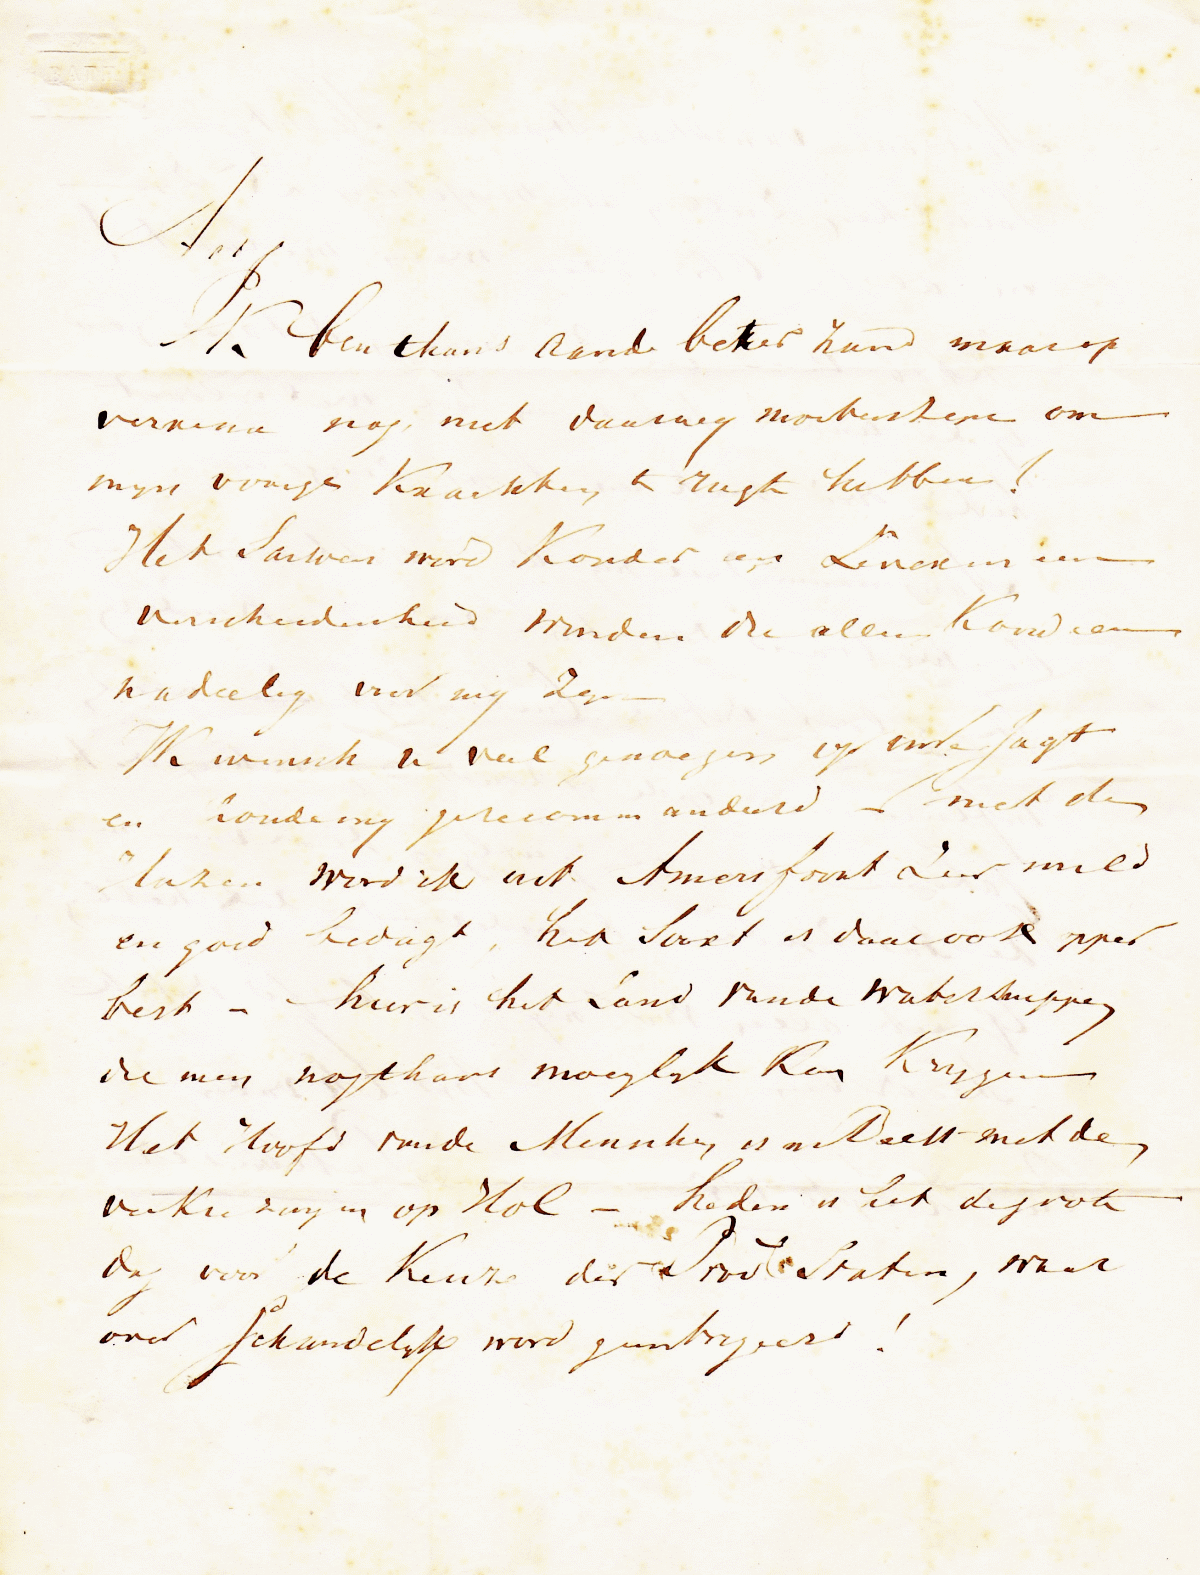 Ik ben thans aande beter hand maar op
nog niet daarweg moeten zyn om
myn vorige Krachten te rugte hebben!
Het word Kouder en
verscheidenheid winden die allen Koud en
nadeelig voor my Zyn
IK wensch u veel genoegen op Jagt
en houde my gerecommandeerd – met de
Hazen word ik uit Amersfoort Zeer mild
en goed bedagt, het Soort is daar ook opper
best – hier is het Land vande watersnippen
die men nogthans moeylyk Kan Krygen
Het Hoofd vande Menschen is in Deelt met de
verkiezingen op Hol – heden is het de groote
dag voor de Keuze der Prov Staten, waar
over schandelyk word geintrigeerd!